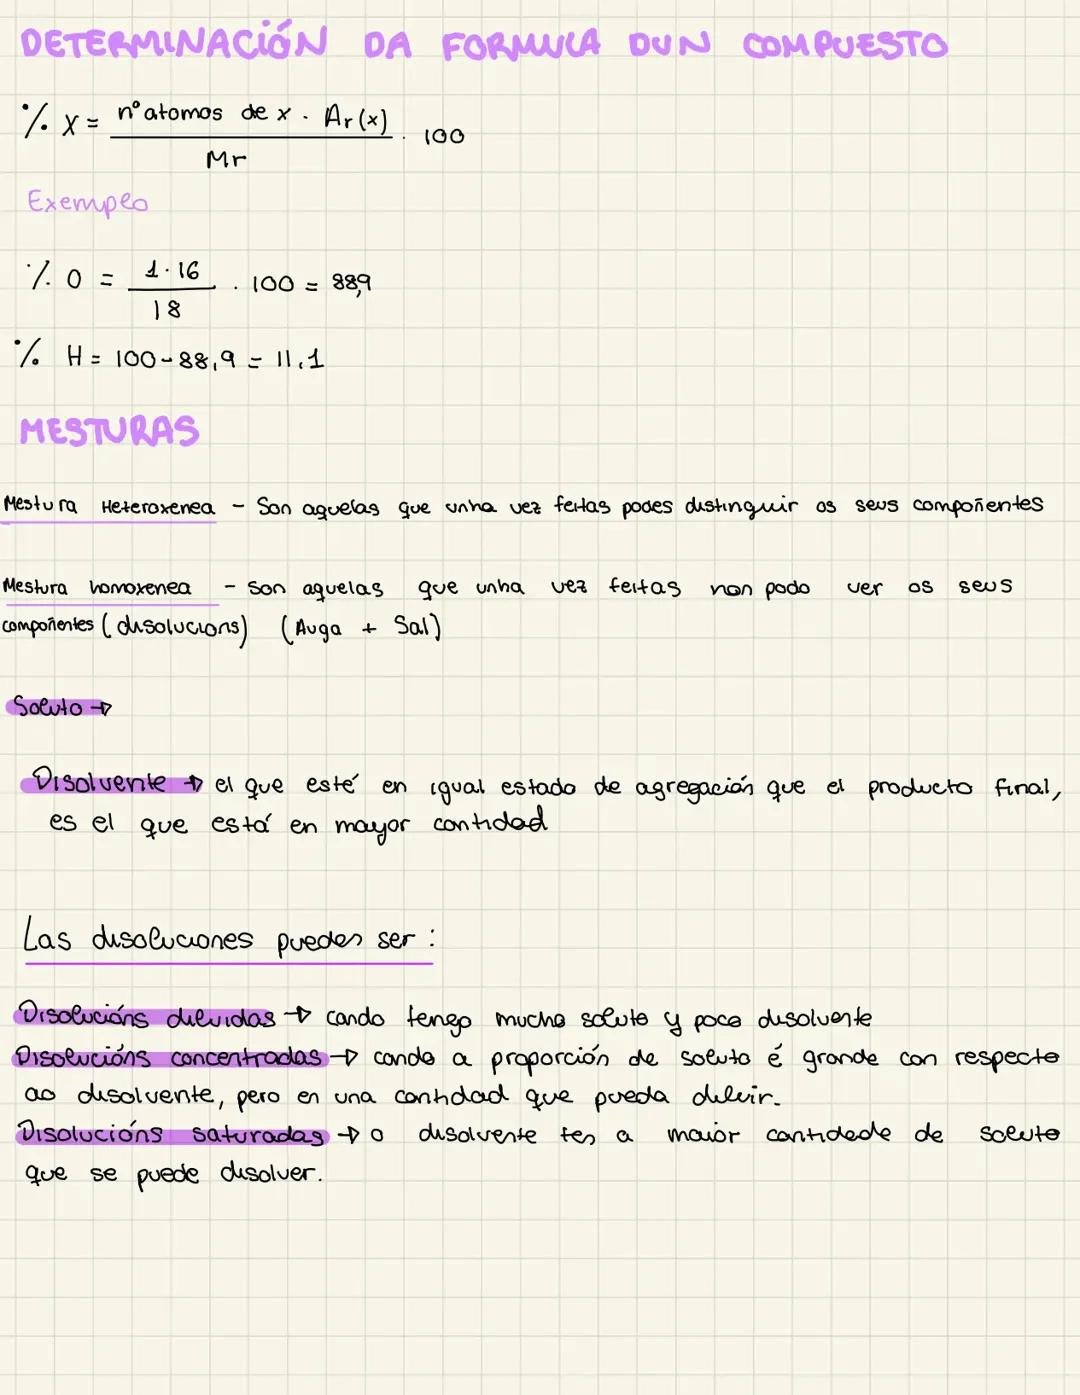 DETERMINACIÓN DA FORMULA DUN COMPUESTO
% X = nº atomos de x · Ar(x) / Mr · 100
Exemplo
% O = 1·16 / 18 · 100 = 88,9
% H = 100-88,9 = 11,1
MESTURAS
Mestura Heteroxenea - Son aquelas que unha vez feitas podes distinguir os seus compoñentes
Mestura homoxenea - Son aquelas que unha vez feitas non podo ver os seus
compoñentes (disolucions) (Auga + Sal)
Soluto →
Disolvente → el que esté en igual estado de agregación que el producto final,
es el que está en mayor cantidad
Las disoluciones puedes ser :
Disolucións diluidas → cando tengo mucho soluto y poco disolvente
Disolucións concentradas → cando a proporción de soluto é grande con respecto
ao disolvente, pero en una cantidad que pueda diluir.
Disolucións saturadas → o disolvente ten a maior cantidade de soluto
que se puede disolver.